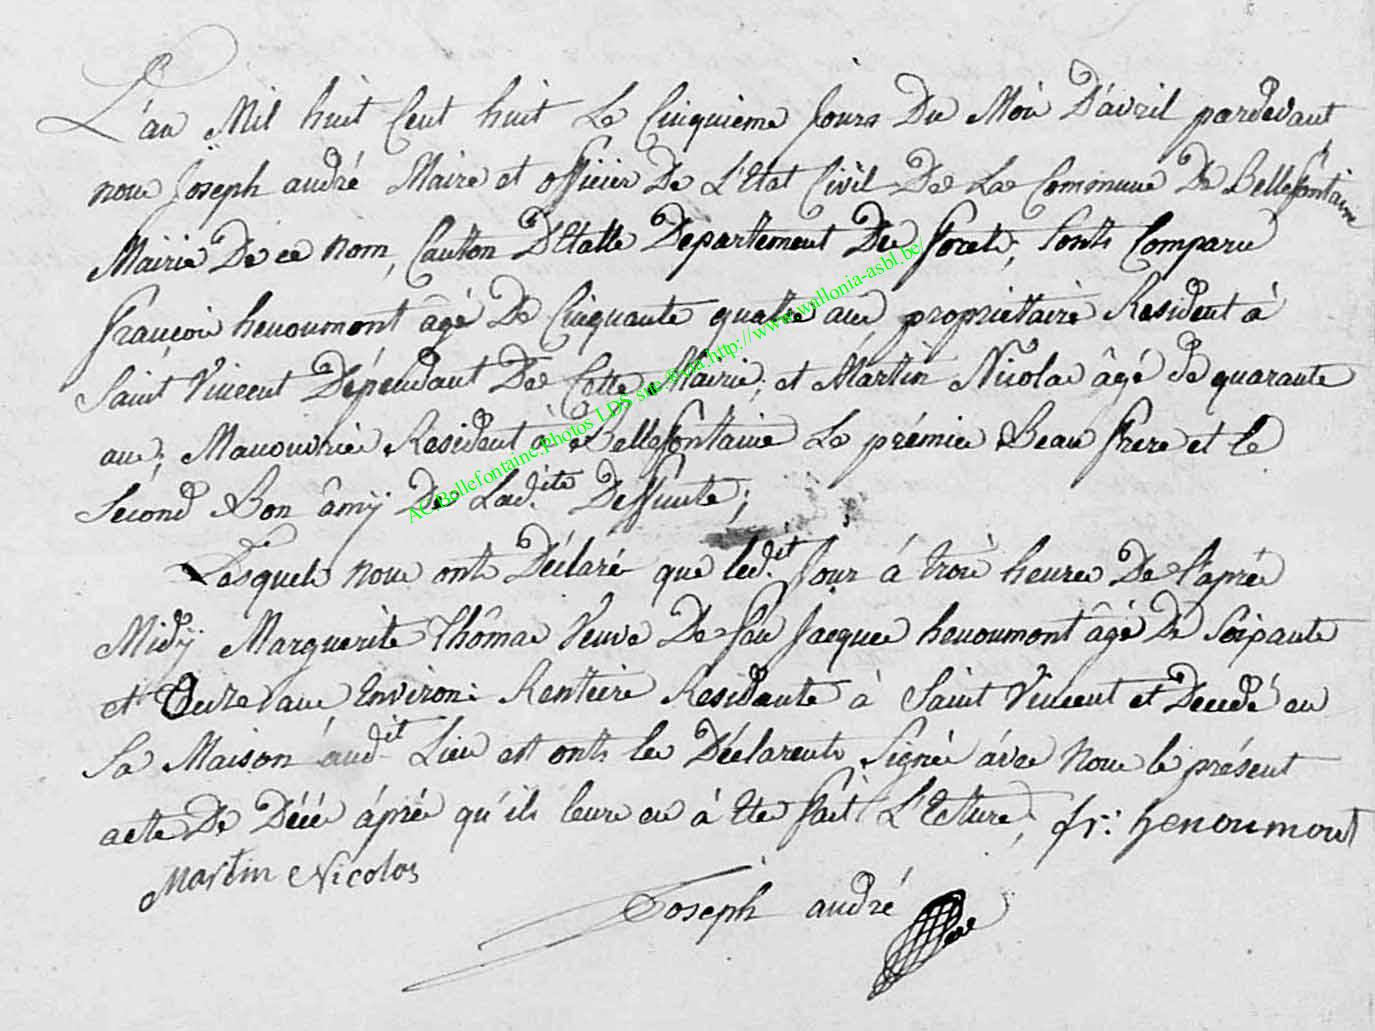 L'an Mil huit Cent huit Le Cinquieme Jours Du Mois D'avril pardevant
nous Joseph andré Maire et officier De L'Etat Civil De La Commune De Bellefontaine
Mairie De ce nom, Canton D'Etalle Departement Des forets; sonts Comparu
françois henoumont âgé De Cinquante quatre ans proprietaire Resident à
Saint Vincent Dépendant De Cette Mairie; et Martin Nicolas âgé de quarante
ans; Manouvrier Resident à Bellefontaine Le prémier Beau frere et le
sécond Bon âmÿ De Lad.ite Deffunte;
Lesquels nous onts Déclaré que led.it Jour á trois heures De l'aprés
Midÿ Marguerite Thômas Veuve De feu Jacques henoumont âgé De Soixante
et Onze ans Environ: Rentiere Residante à Saint Vincent et Decedé en
Sa Maison aud.it Lieu et onts les Déclarents Signé ávec Nous le présent
acte De Décés áprés qu'ils leurs en à Ete fait L'Ecture; fr: henoumont
Martin Nicolas
Joseph andré
AC Bellefontaine.Photos LDS site © via http://www.wallonia-asbl.be/